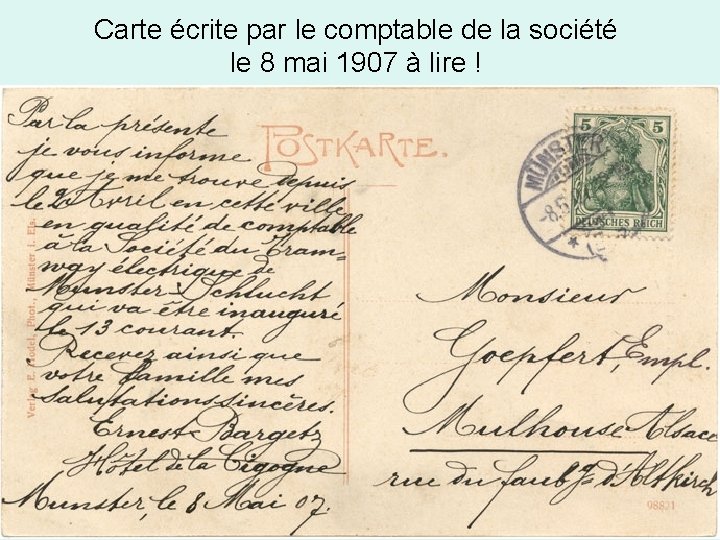 Carte écrite par le comptable de la société
le 8 mai 1907 à lire !
Par la présente
je vous informe
que je me trouve depuis
le 2 Avril en cette ville
en qualité de comptable
à la Société du Tram=
way électrique de
Munster-Schlucht
qui va être inauguré
le 13 courant.
Recevez ainsi que
votre famille mes
salutations sincères.
Ernest Bargetz
Hôtel de la Cigogne
Munster, le 8 Mai 07.
POSTKARTE.
Verlag E. Model, Phot., Münster i. Els.
5 5
DEUTSCHES REICH
MÜNSTER
-8.5
Monsieur
Goepfert, Empl.
Mulhouse Alsace
rue du faubg d'Altkirch
98821